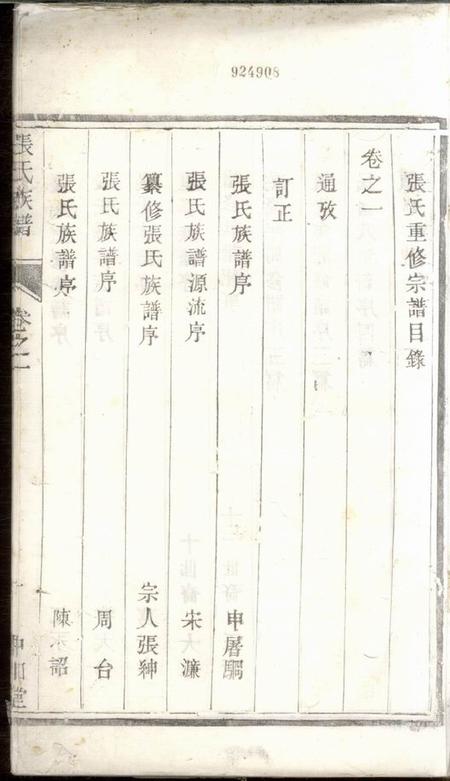 924908
張氏重修宗譜目錄
卷之一
通攷
訂正
張氏族譜序 申屠駉
張氏族譜源流序 宋濂
纂修張氏族譜序 宗人張紳
張氏族譜序 周台
張氏族譜序 陳 詔
張氏族譜 卷之一